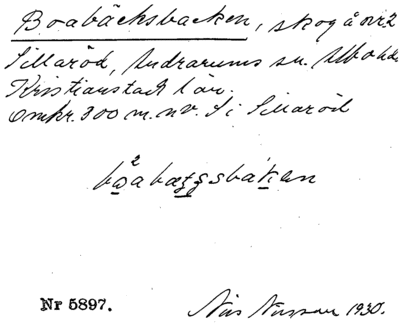 Boabäcksbacken, skog å nr 2
Sillaröd, Andrarums sn. Albo hd.
Kristianstads län.
Omkr. 300 m. nv. Si Sillaröd
boabæggsbakan
Nr 5897.
Nils Nilsson 1930.